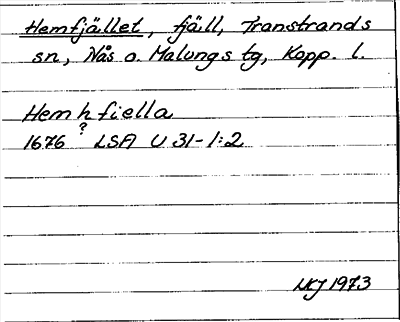 Hemfjället, fjäll, Transtrands
sn, Nås o. Malungs tg, Kopp. l.
Hem h fiella
?
1676 LSA U 31-1:2
1973